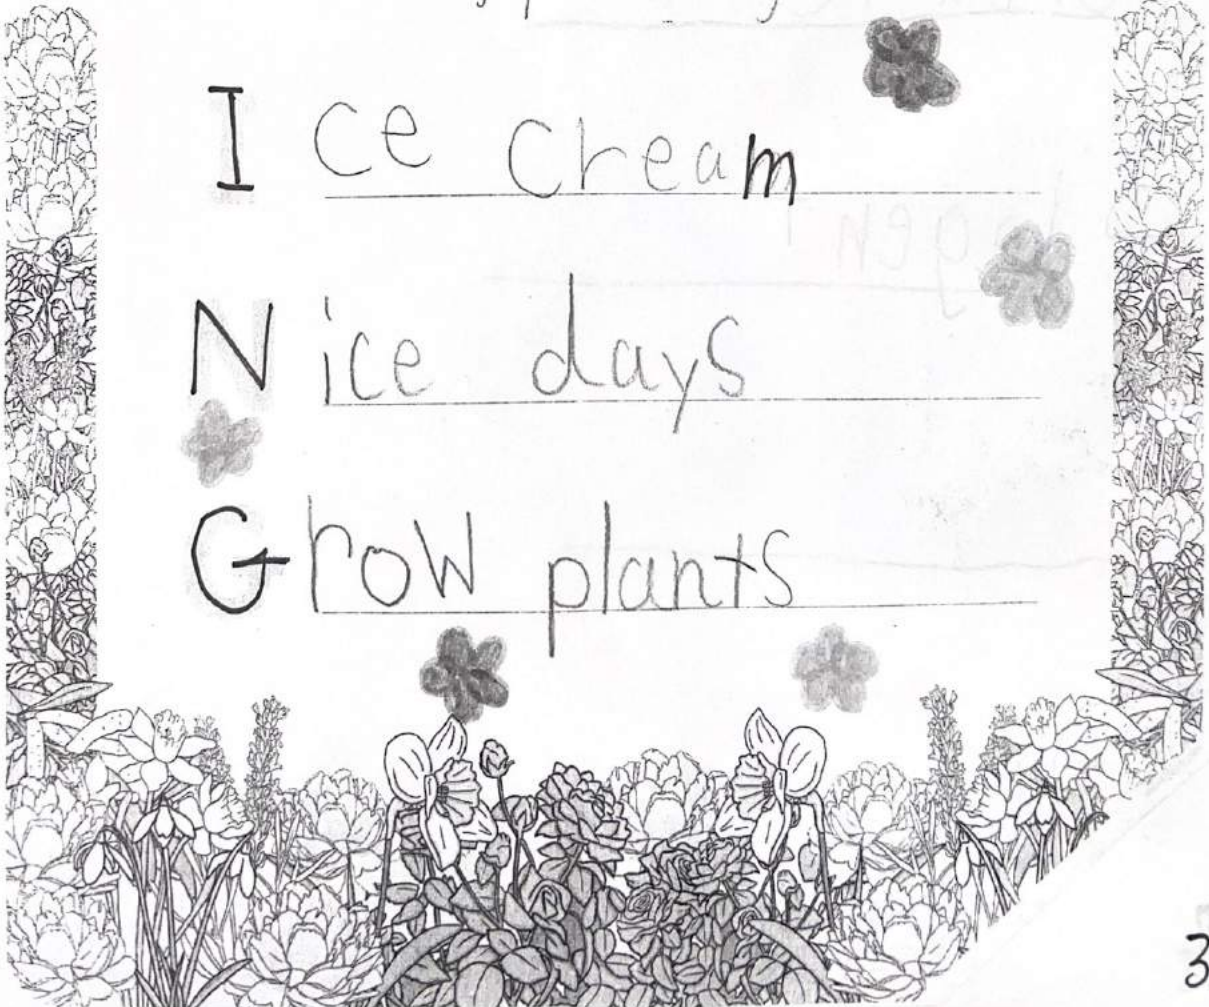 Ice cream
Nice days
Grow plants
3